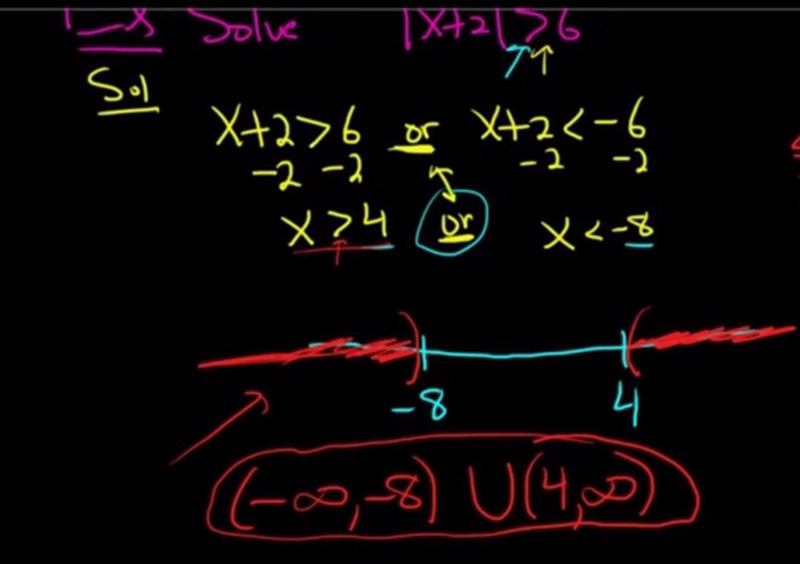 Solve |x+2|>6
Sol
x+2>6 or x+2<-6
-2 -2 -2 -2
x>4 or x<-8
-8 4
(-∞,-8) ∪ (4,∞)